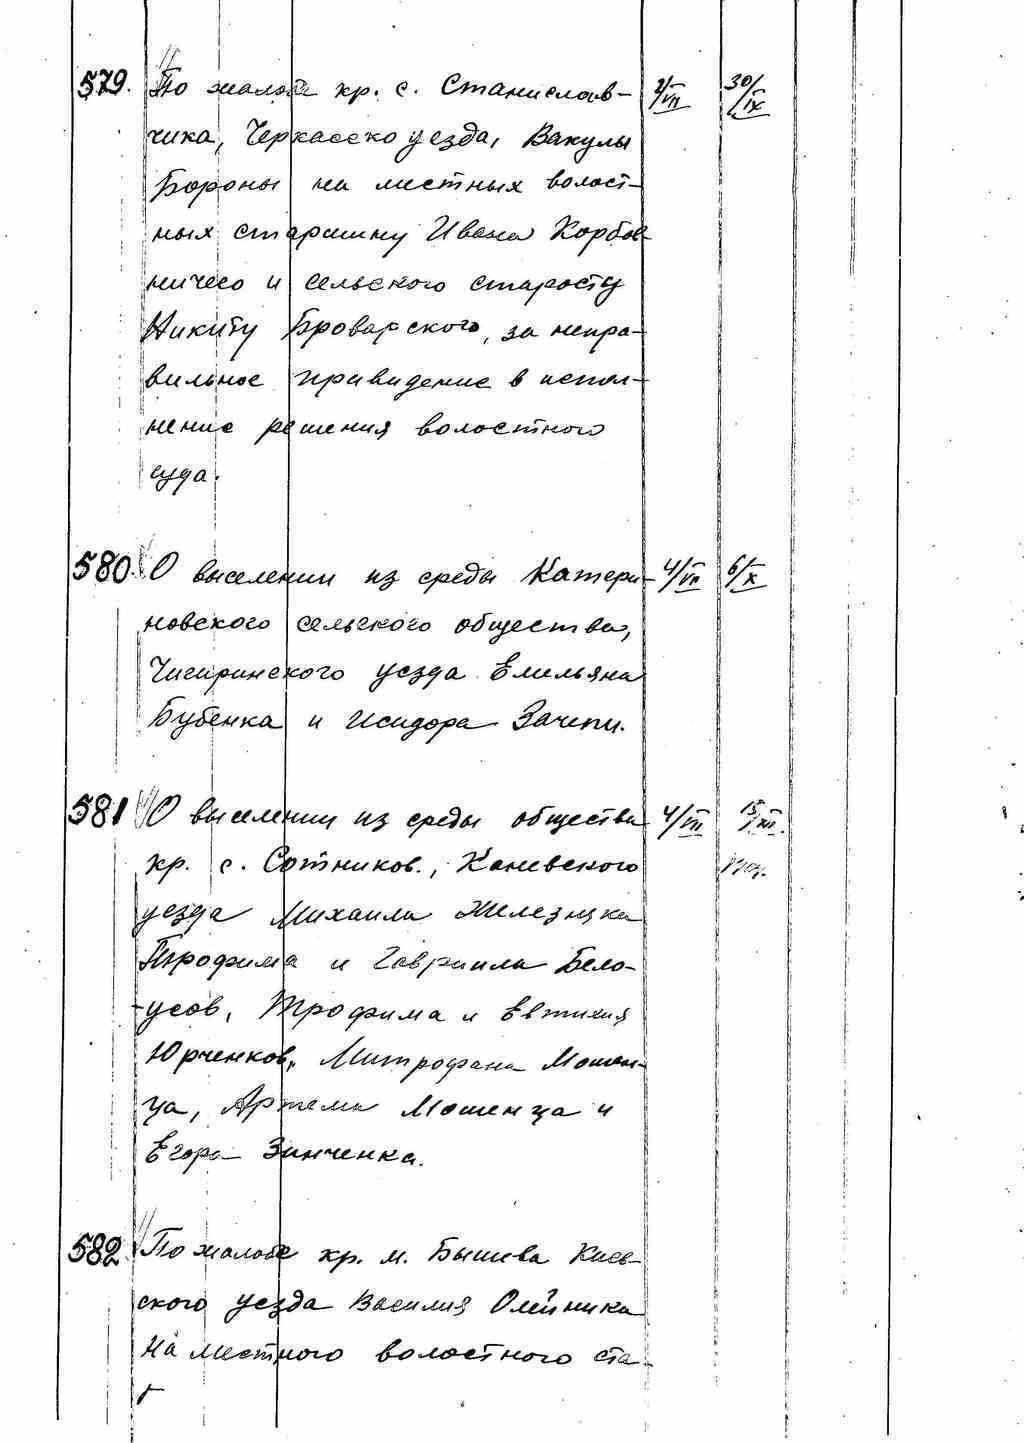 579. По жалобе кр. с. Станислав- 2/VII 30/IX
чика, Черкасско уезда, Вакулы
Бороны на местных волост-
ных старшину Ивана Корбов-
ничего и сельского старосту
Никиту Броварского, за непра-
вильное приведение в испол-
нение решения волостного
суда.
580. О выселении из среды Катери- 4/VII 6/X
новского сельского общества,
Чигиринского уезда Емельяна
Бубенка и Исидора Зачепи.
581 О выселении из среды общества 4/VII 15/XII.
кр. с. Сотников., Каневского
уезда Михаила Железняка
Трофима и Гавриила Бело-
усов, Трофима и Евтихия
Юрченков, Митрофана Мошен-
ца, Артема Мошенца и
Егора Зинченка.
582. По жалобе кр. м. Бышева Киев-
ского уезда Василия Олейника
на местного волостного ста-